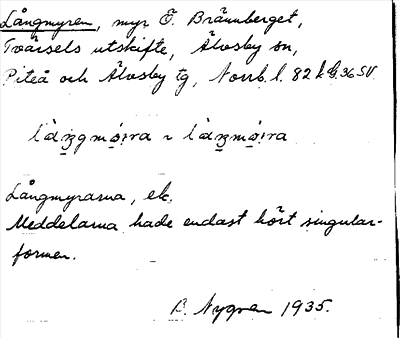 Långmyren, myr Ö. Brännberget,
Tvärsels utskifte, Älvsby sn,
Piteå och Älvsby tg, Norrb. l. 82 k G 36 SV

Långmyrarna, ek.
Meddelarna hade endast hört singular-
formen.
B. Nygren 1935.